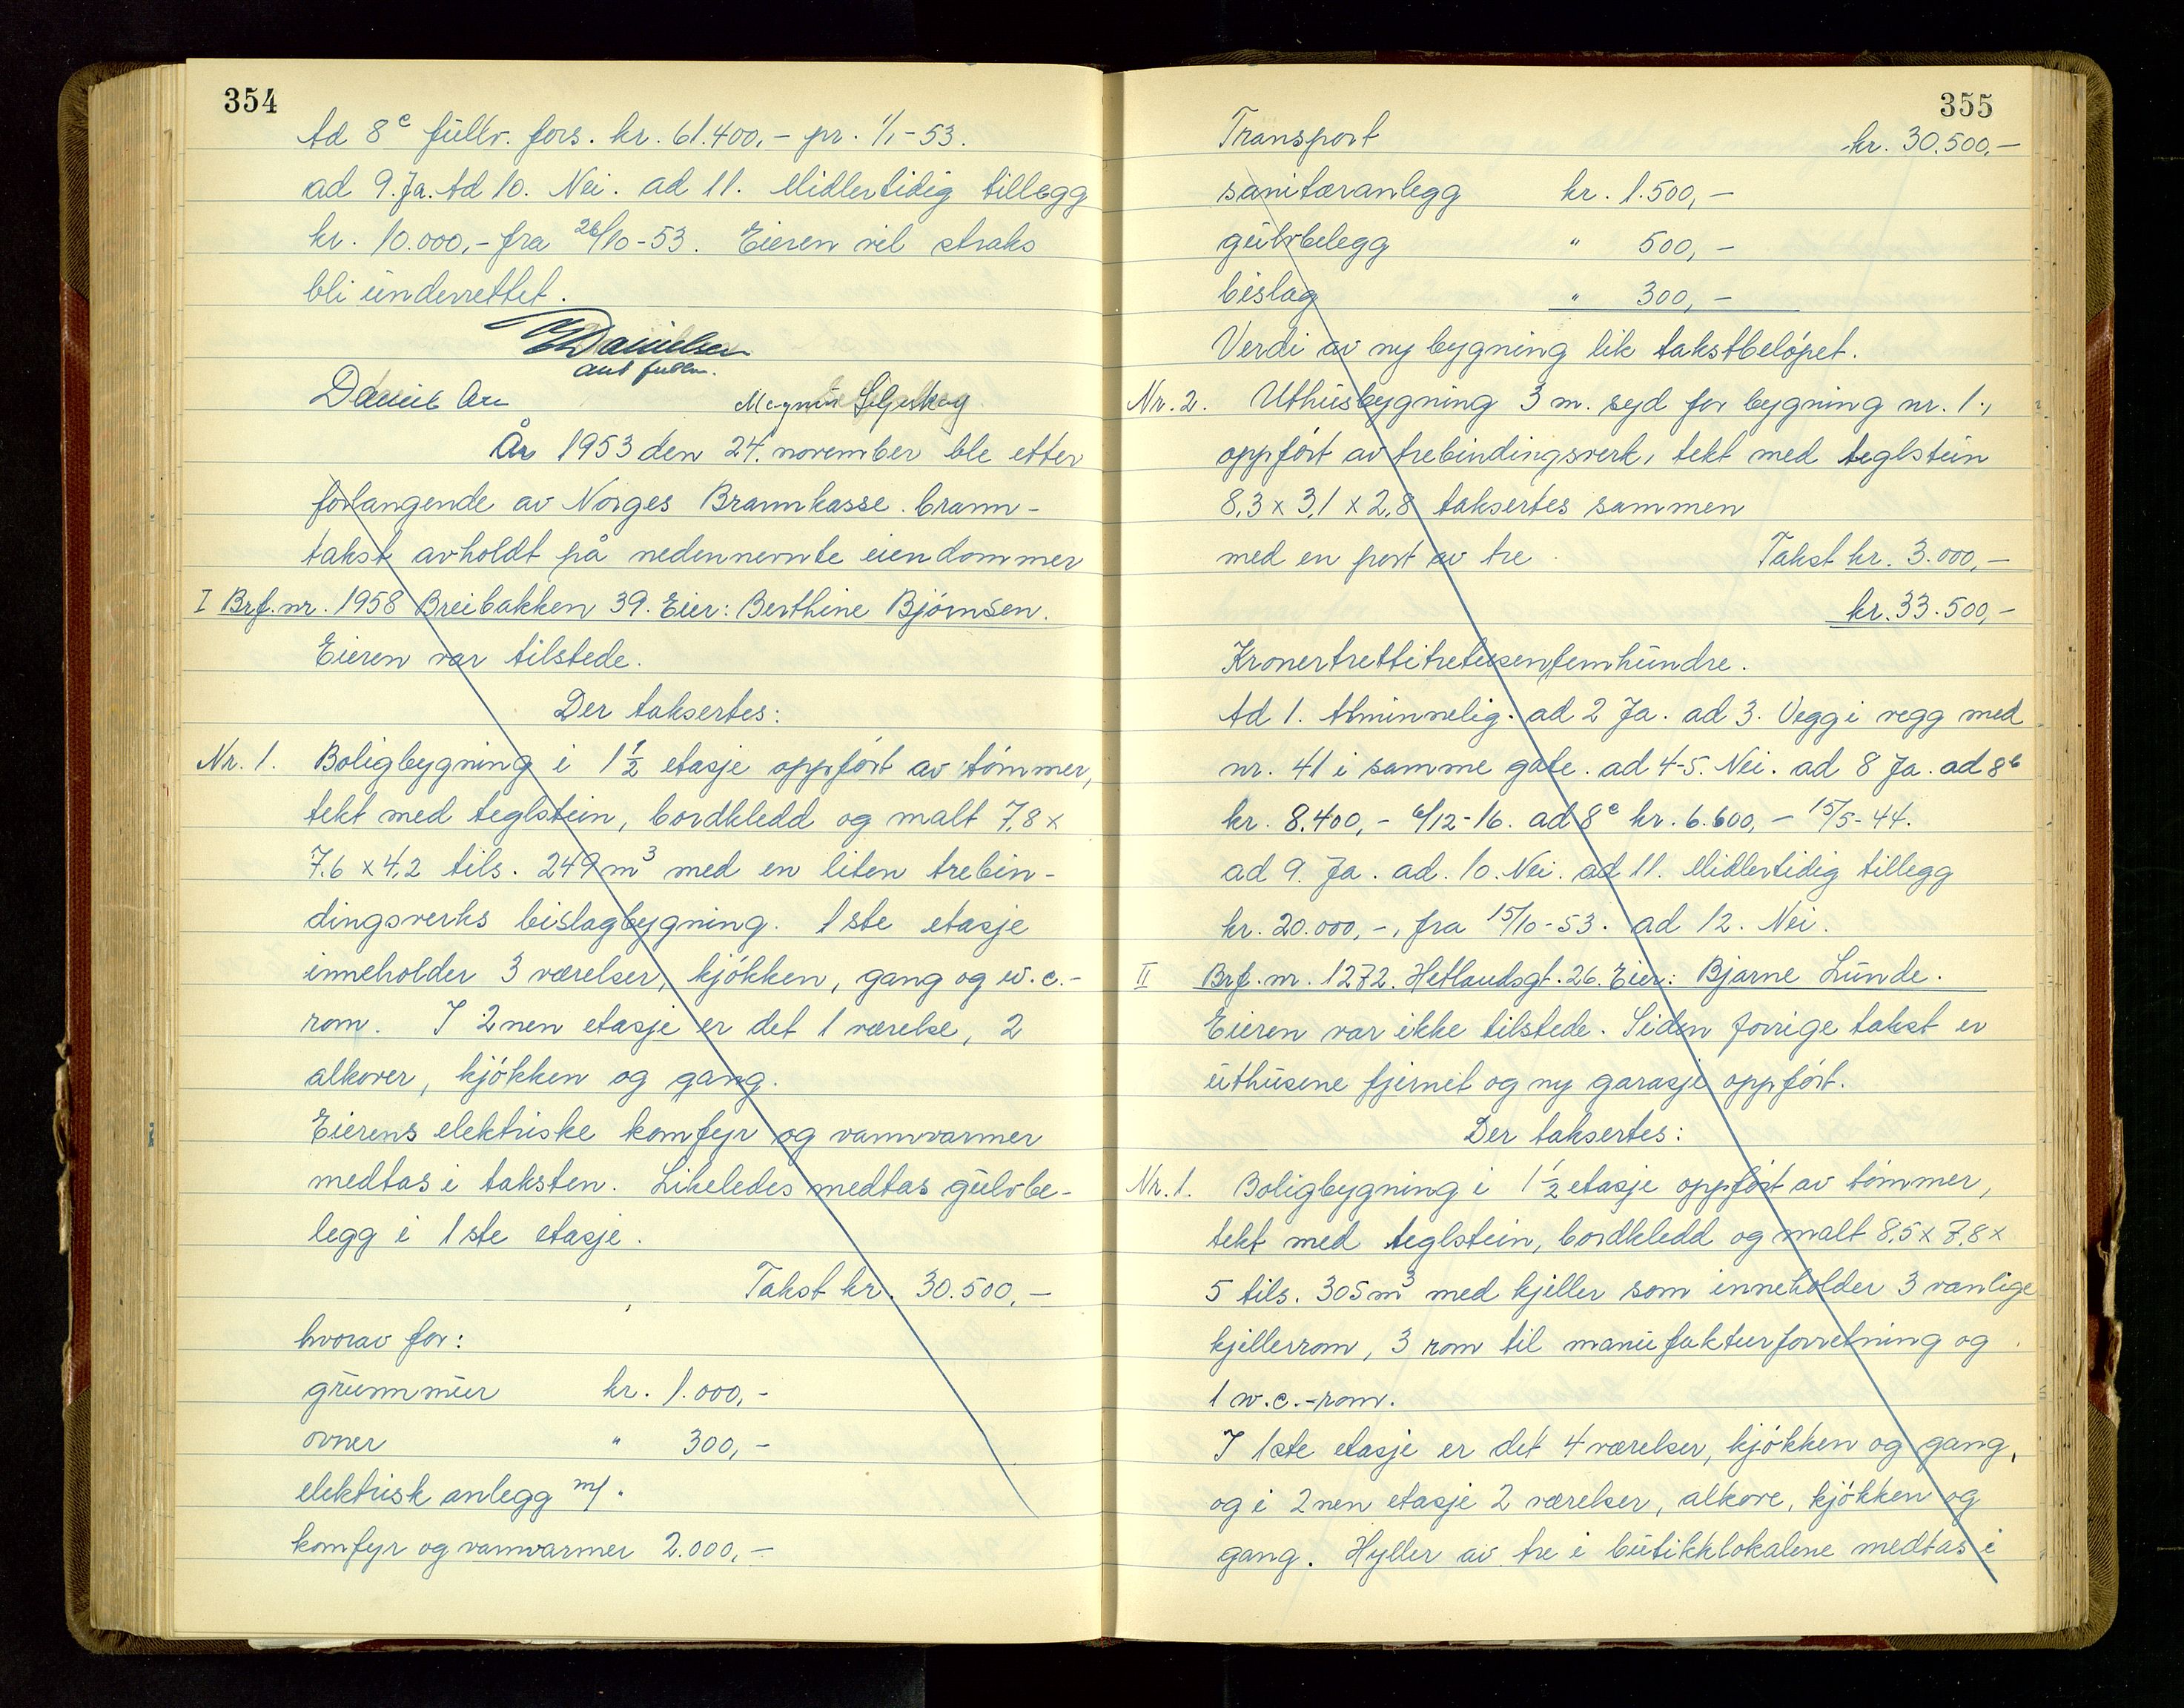 354
Ad 8c fullv. fors. kr. 61.400,- pr. 1/1-53.
ad 9. Ja. Ad 10. Nei. ad 11. Midlertidig tillegg
kr. 10.000,- fra 26/10-53. Eieren vil straks
bli underrettet.
Danielsen
aut fullm.
År 1953 den 24. november ble etter
forlangende av Norges Brannkasse brann-
takst avholdt på nedennevnte eiendommer
I Brf. nr. 1958 Breibakken 39. Eier: Berthine Bjørnsen.
Eieren var tilstede.
Der taksertes:
Nr. 1. Boligbygning i 1 1/2 etasje oppført av tømmer,
tekt med teglstein, bordkledd og malt 7,8 x
7,6 x 4,2 tils. 249 m3 med en liten trebin-
dingsverks bislagbygning. 1ste etasje
inneholder 3 værelser, kjøkken, gang og w.c.-
rom. I 2nen etasje er det 1 værelse, 2
alkover, kjøkken og gang.
Eierens elektriske komfyr og vannvarmer
medtas i taksten. Likeledes medtas gulvbe-
legg i 1ste etasje.
Takst kr. 30.500,-
hvorav for:
grunnmur kr. 1.000,-
ovner " 300,-
elektrisk anlegg m/.
komfyr og vannvarmer 2.000,-
355
Transport kr. 30.500,-
sanitæranlegg kr. 1.500,-
gulvbelegg " 500,-
bislag " 300,-
Verdi av ny bygning lik takstbeløpet.
Nr. 2. Uthusbygning 3 m. syd for bygning nr. 1.,
oppført av trebindingsverk, tekt med teglstein
8,3 x 3,1 x 2,8 taksertes sammen
med en port av tre. Takst kr. 3.000,-
kr. 33.500,-
Kronertrettitretusenfemhundre.
Ad 1. Alminnelig. ad 2 Ja. ad 3. Vegg i vegg med
nr. 41 i samme gate. ad 4-5. Nei. ad 8 Ja. ad 8b
kr. 8.400,- 6/12-16. ad 8c kr. 6.600,- 15/5-44.
ad 9. Ja. ad. 10. Nei. ad 11. Midlertidig tillegg
kr. 20.000,-, fra 15/10-53. ad 12. Nei.
II Brf. nr. 1272. Hetlandsgt. 26. Eier: Bjarne Lunde.
Eieren var ikke tilstede. Siden forrige takst er
uthusene fjernet og ny garasje oppført.
Der taksertes:
Nr. 1. Boligbygning i 1 1/2 etasje oppført av tømmer,
tekt med teglstein, bordkledd og malt 8,5 x 7,8 x
5 tils. 305 m3 med kjeller som inneholder 3 vanlige
kjellerrom, 3 rom til manufakturforretning og
1 w.c.-rom.
I 1ste etasje er det 4 værelser, kjøkken og gang,
og i 2nen etasje 2 værelser, alkove, kjøkken og
gang. Hyller av tre i butikklokalene medtas i